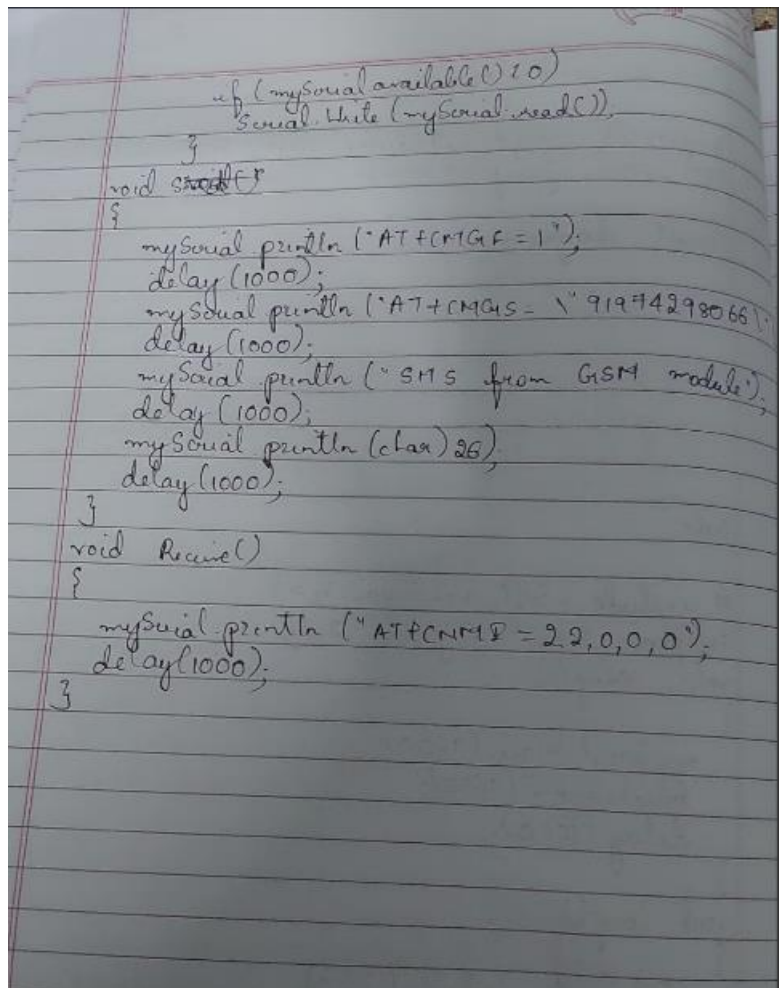 if (mySerial available() > 0)
Serial. Write (mySerial. read())
}
void
{
mySerial println ("AT+CMGF = 1");
delay (1000);
mySerial println ("AT+CMGS = \" 919742980661 \
delay (1000);
mySerial println (" SMS from GSM module");
delay (1000);
mySerial println (char) 26)
delay (1000);
}
void Receive()
{
mySerial. println ("AT+CNMI = 2 2, 0, 0, 0");
delay (1000);
}